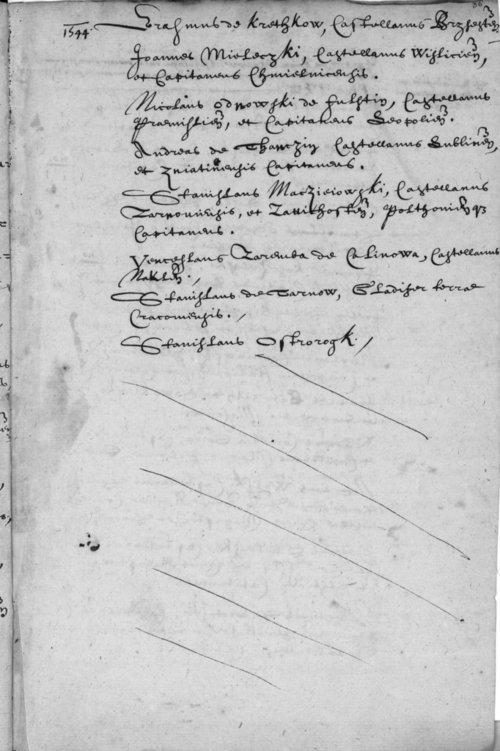 1544. Erasmus de Krethkow, Castellanus Brzesten
Joannes Mieleczki, Castellanus Wisliciēn,
et Capitaneus Chmielnicensis.
Nicolaus Odnowski de Fulstin, Castellanus
Praemisliēn, et Capitaneus Leopoliēn.
Andreas de Thanczin Castellanus Lubliņēn,
et Sniatinensis Capitaneus.
Stanislaus Macziciowski, Castellanus
Tarnoviensis, et Zavichosteñ,
Capitaneus.
Venceslaus Zaremba de Calinowa, Castellanus
Nakleñ.
Stanislaus de Tarnow, Gladifer terrae
Cracoviensis.
Stanislaus Ostrorogk.